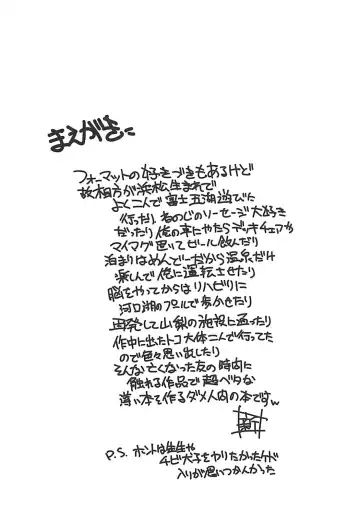 まえがきに
フォーマットの好きづきもあるけど
故相方が浜松生まれで
よく二人で富士五湖遊びに
行ったり、あのじのソーセージ大好き
だったり俺の車にやたらデッキチェアや
マイマグ置いてビール飲んだり
泊まりはめんでーだから温泉だけ
楽しんで俺に運転させたり
脳をやってからはリハビリに
河口湖のプールで歩かせたり
再発して山梨の施設に通ったり
作中に出たトコ大体二人で行ってた
ので色々思い出したり
そんな亡くなった友の時間に
触れる作品で超ベタな
薄い本を作るダメ人間の本ですw
P.S. ホントは生生や
チビ犬子をヤリたかったけど
入りが思いつかんかった